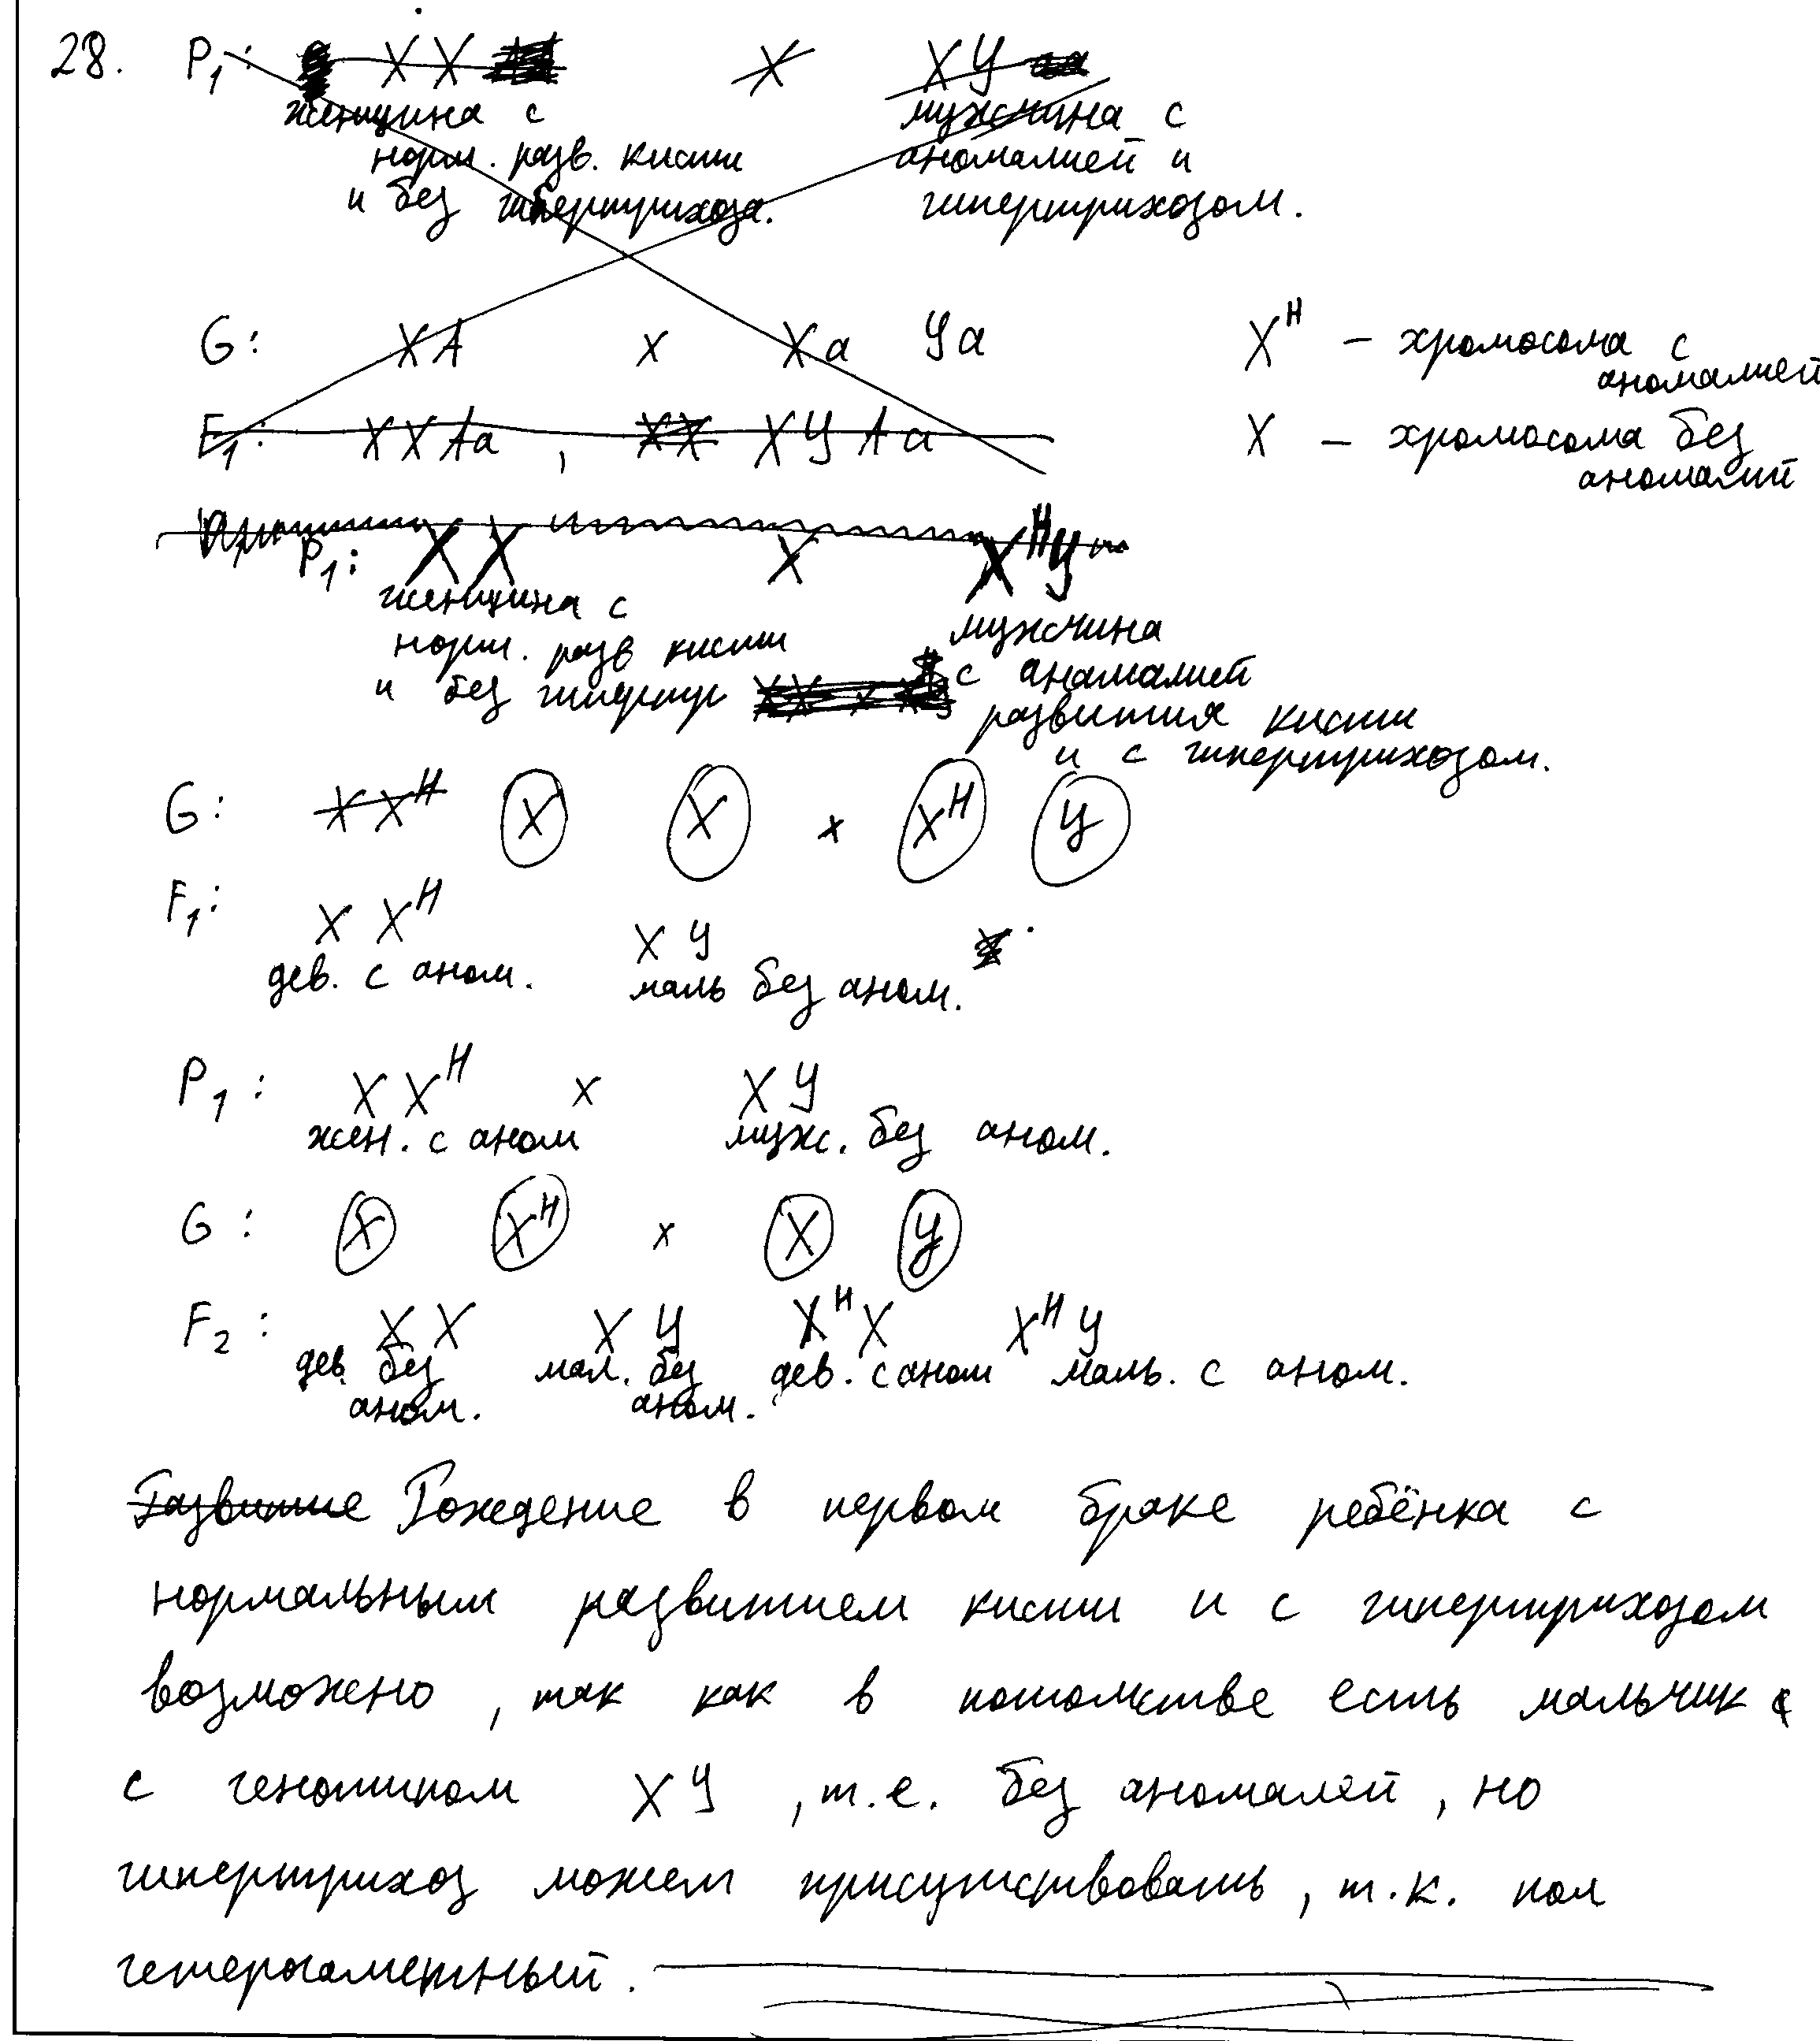 28. P₁: XX × XY
женщина с мужчина с
норм. разв. кисти аномалией и
и без гипертрихоза. гипертрихозом.
G: XA × Xa Ya
Xᴴ – хромосома с
аномалией
F₁: XXAa, XX XYAa
X – хромосома без
аномалий
P₁: XX × XᴴY
женщина с
норм. разв кисти
и без гипертр
мужчина
с анамалией
развития кисти
и с гипертрихозом.
G: XXᴴ X X × Xᴴ Y
F₁: XXᴴ XY
дев. с аном. маль без аном.
P₁: XXᴴ × XY
жен. с аном муж. без аном.
G: X Xᴴ × X Y
F₂: XX XY XᴴX XᴴY
дев. без мал. без дев. с аном маль. с аном.
аном. аном.
Развитие Рождение в первом браке ребёнка с
нормальным развитием кисти и с гипертрихозом
возможно, так как в потомстве есть мальчик
с генотипом XY, т.е. без аномалей, но
гипертрихоз может присутствовать, т.к. пол
гетерогаметный.